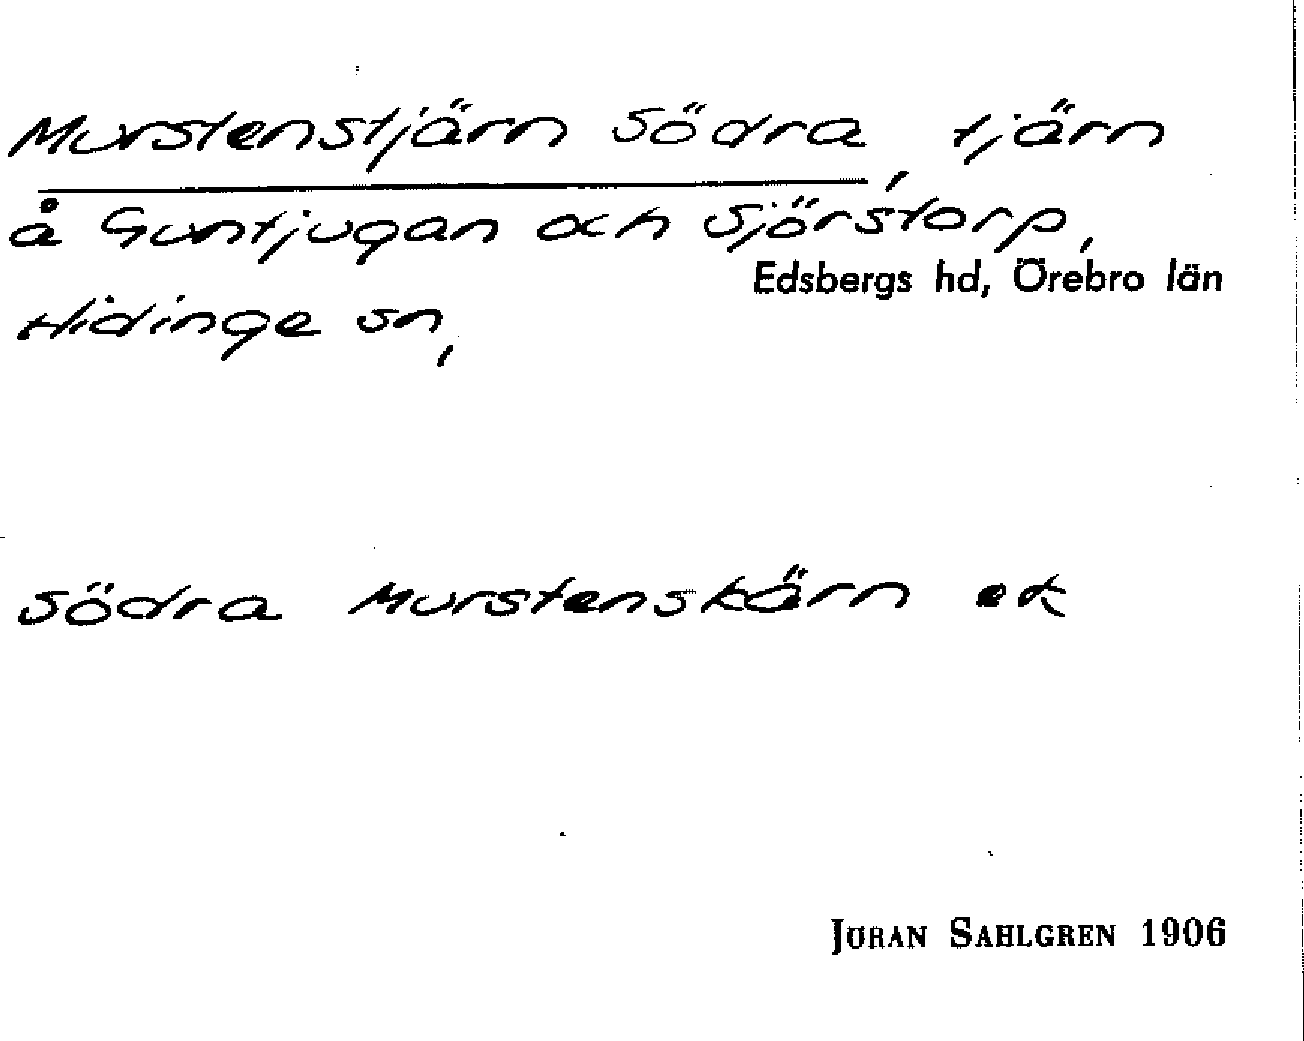 Murstenstjärn Södra, tjärn
å Guntjugan och Sjörstorp,
Edsbergs hd, Örebro län
Hidinge sn,
Södra Murstenskärn ek
JOHAN SAHLGREN 1906